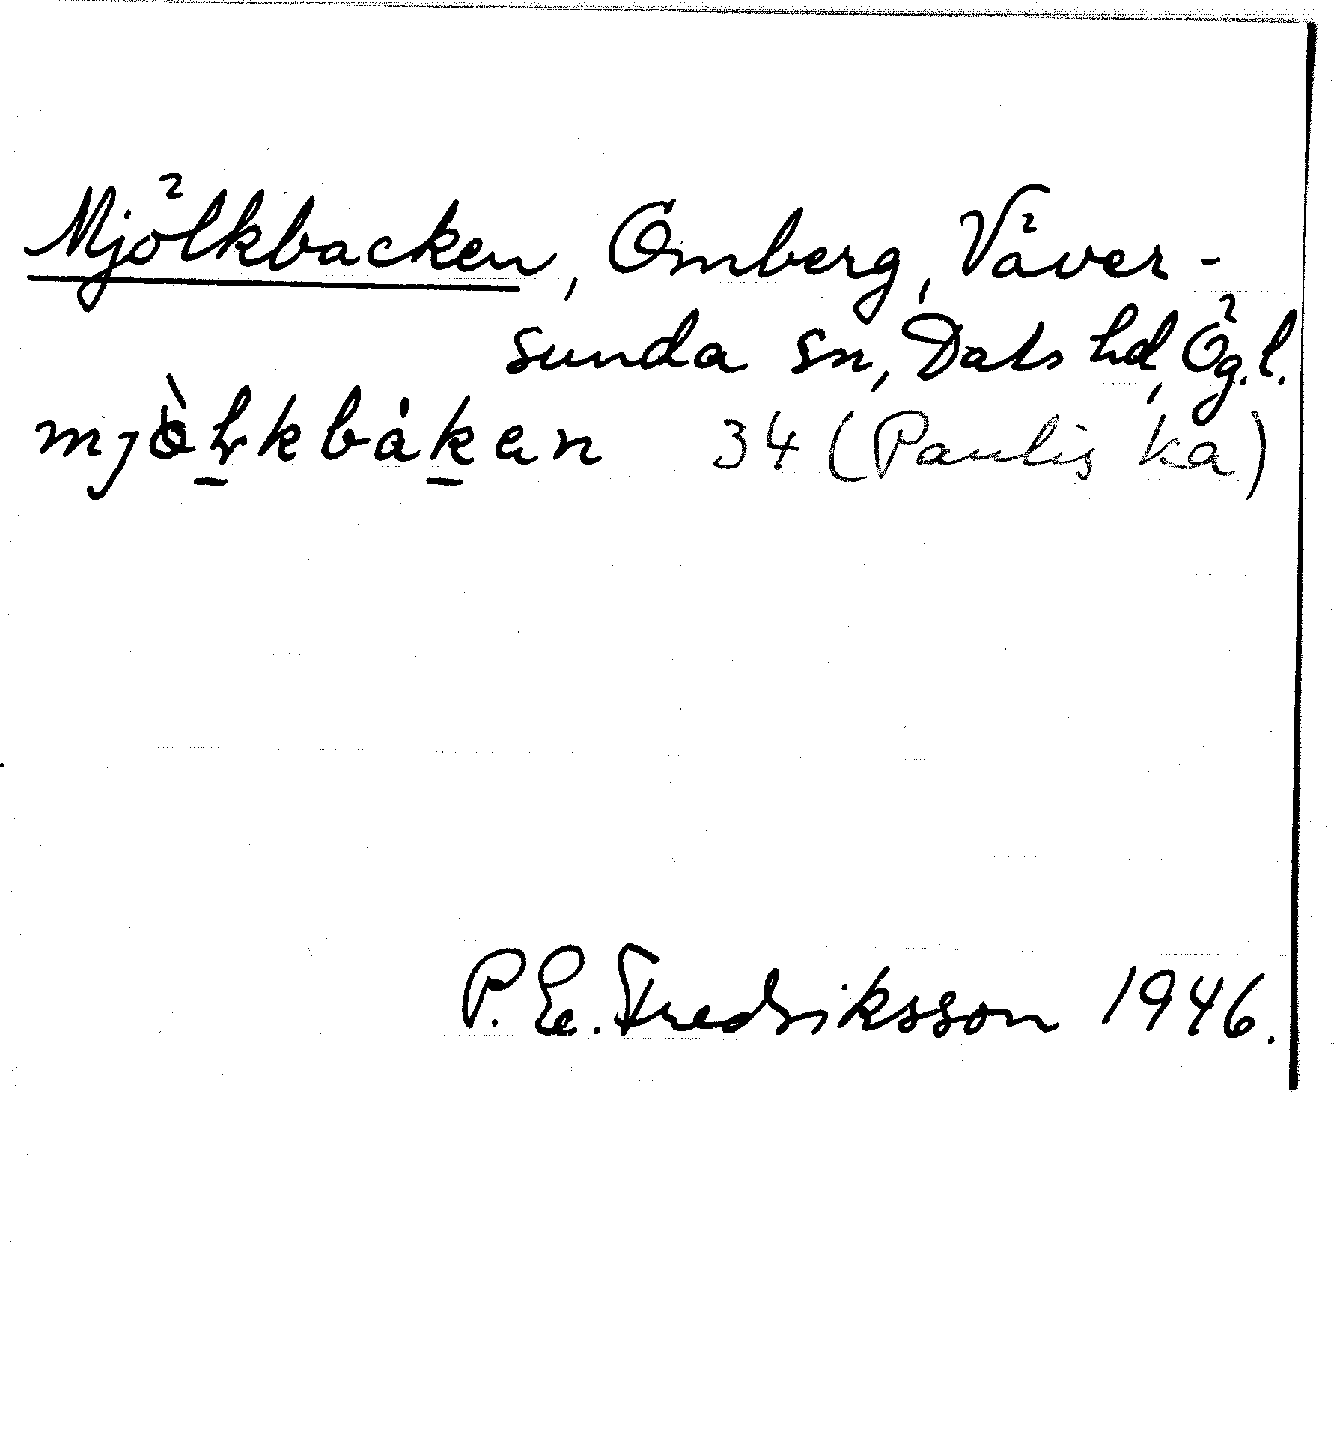 Mjölkbacken, Omberg, Väver-
sunda sn, Dals hd, Ög.l.
mjòlkbáken 34 (Paulis ka)
P. E. Fredriksson 1946.